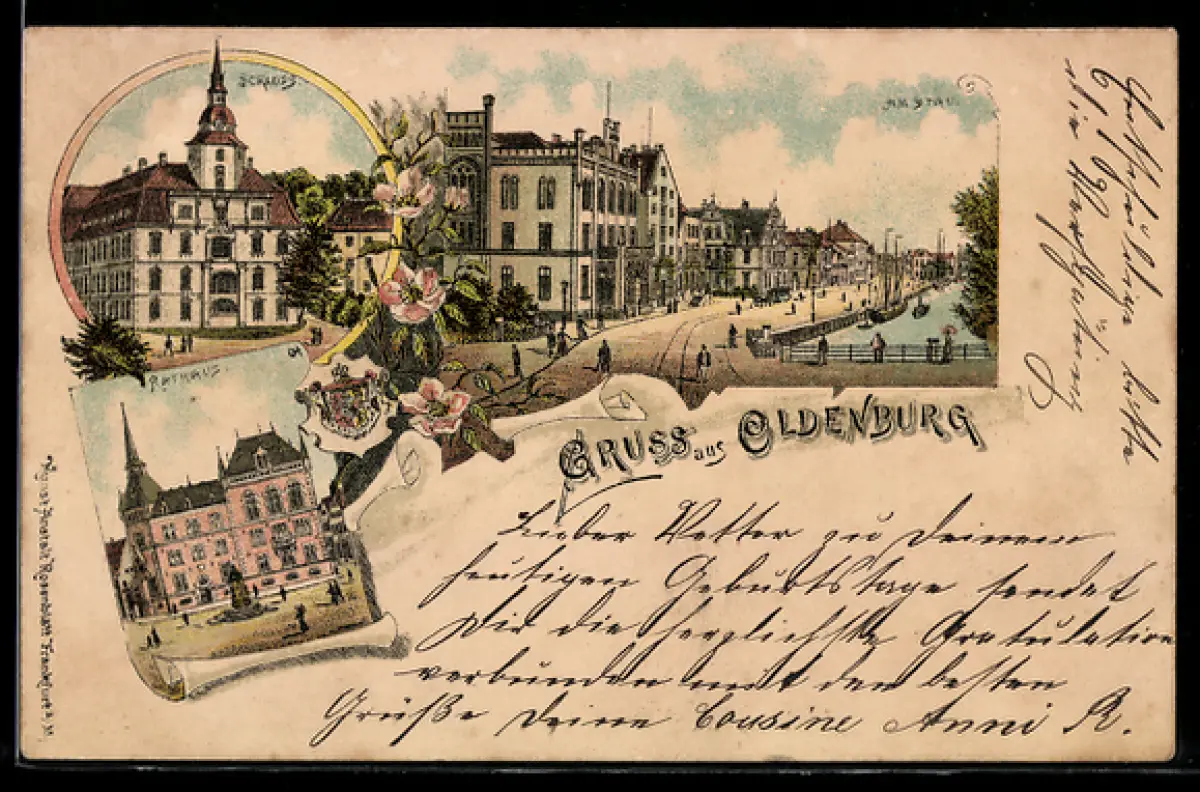 SCHLOSS.
AM STAU.
RATHAUS.
GRUSS aus OLDENBURG
Lieber Vetter zu Deinem
heutigen Geburtstage sendet
Dir die herzlichste Gratulation
verbunden mit den besten
Grüße Deine Cousine Anni R.
Kunst Anstalt Rosenblatt Frankfurt a. M.